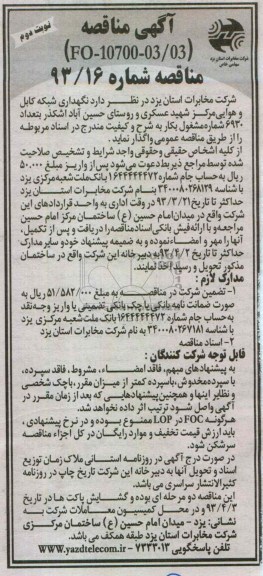 نوبت دوم
آگهی مناقصه
(FO-10700-03/03)
مناقصه شماره ۹۳/۱۶
شرکت مخابرات استان یزد
سهامی خاص
شرکت مخابرات استان یزد در نظر دارد نگهداری شبکه کابل
و هوایی مرکز شهید عسکری و روستای حسین آباد اشکذر بتعداد
۶۹۳۰ شماره مشغول بکار به شرح و کیفیت مندرج در اسناد مربوطه
را از طریق مناقصه عمومی واگذار نماید.
از کلیه اشخاص حقیقی وحقوقی واجد شرایط و تشخیص صلاحیت
شده توسط مراجع ذیربط دعوت می شود پس از واریز مبلغ ۵۰.۰۰۰
ریال به حساب جام شماره ۱۶۴۴۴۴۴۴۷۲ بانک ملت شعبه مرکزی یزد
با شناسه ۳۴۰۰۰۸۰۲۶۸۱۲۹ بنام شرکت مخابرات استان یزد
حداکثر تا تاریخ ۹۳/۳/۲۱ در وقت اداری به واحد قراردادهای این
شرکت واقع در میدان امام حسین (ع) ساختمان مرکز امام حسین
مراجعه و با ارائه فیش بانکی اسناد مناقصه را دریافت و پس از تکمیل،
آنها را مهر و امضاء نموده و به ضمیمه پیشنهاد خود و سایر مدارک
حداکثر تا تاریخ ۹۳/۴/۲ به دبیرخانه این شرکت واقع در ساختمان
مذکور تحویل و رسید اخذ نمایند.
مدارک لازم :
۱- تضمین شرکت در مناقصه به مبلغ ۵۱/۵۸۲/۰۰۰ ریال به
صورت ضمانت نامه بانکی یا چک بانکی تضمینی یا واریز وجه نقد
به حساب جام شماره ۱۶۴۴۴۴۴۴۷۲ بانک ملت شعبه مرکزی یزد
با شناسه ۳۴۰۰۰۸۰۲۶۷۱۸۱ به نام شرکت مخابرات استان یزد
۲- اسناد مناقصه
قابل توجه شرکت کنندگان :
به پیشنهادهای مبهم، فاقد امضاء، مشروط، فاقد سپرده،
با سپرده مخدوش، باسپرده کمتر از میزان مقرر، باچک شخصی
و نظایر اینها و همچنین پیشنهادهایی که بعد از زمان مقرر در
آگهی واصل شود ترتیب اثر داده نخواهد شد.
هرگونه FOC در LOP ممنوع بوده و در نرخ پیشنهادی،
باید ارزش قیمت تخفیف و موارد رایگان در کل اجزاء مناقصه
سرشکن شود.
در صورت درج آگهی در روزنامه استانی ملاک زمان توزیع
اسناد و تحویل آنها به دبیرخانه این شرکت تاریخ چاپ در روزنامه
کثیرالانتشار سراسری می باشد.
این مناقصه دو مرحله ای بوده و گشایش پاکت ها در تاریخ
۹۳/۴/۳ و در محل کمیسیون معاملات شرکت به
نشانی: یزد - میدان امام حسین (ع) ساختمان مرکزی
شرکت مخابرات استان یزد طبقه همکف می باشد.
تلفن پاسخگویی ۷۲۳۳۰۱۳ www.yazdtelecom.ir